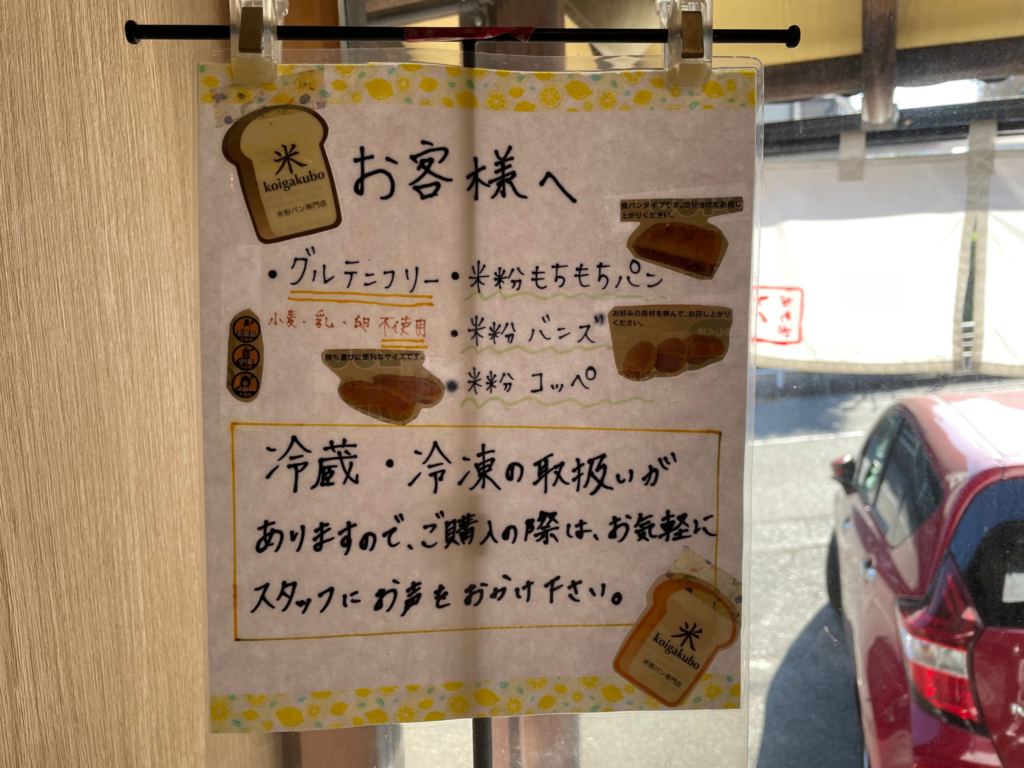 米
koigakubo
米粉パン専門店
お客様へ
食パンタイプです。切り分けてお召し
上がりください。
・グルテンフリー
小麦・乳・卵 不使用
・米粉もちもちパン
お好みの具材を挟んで、お召し上がり
ください。
・米粉 バンズ
持ち運びに便利なサイズです。
・米粉 コッペ
冷蔵・冷凍の取扱いが
ありますので、ご購入の際は、お気軽に
スタッフにお声をおかけ下さい。
米
koigakubo
米粉パン専門店